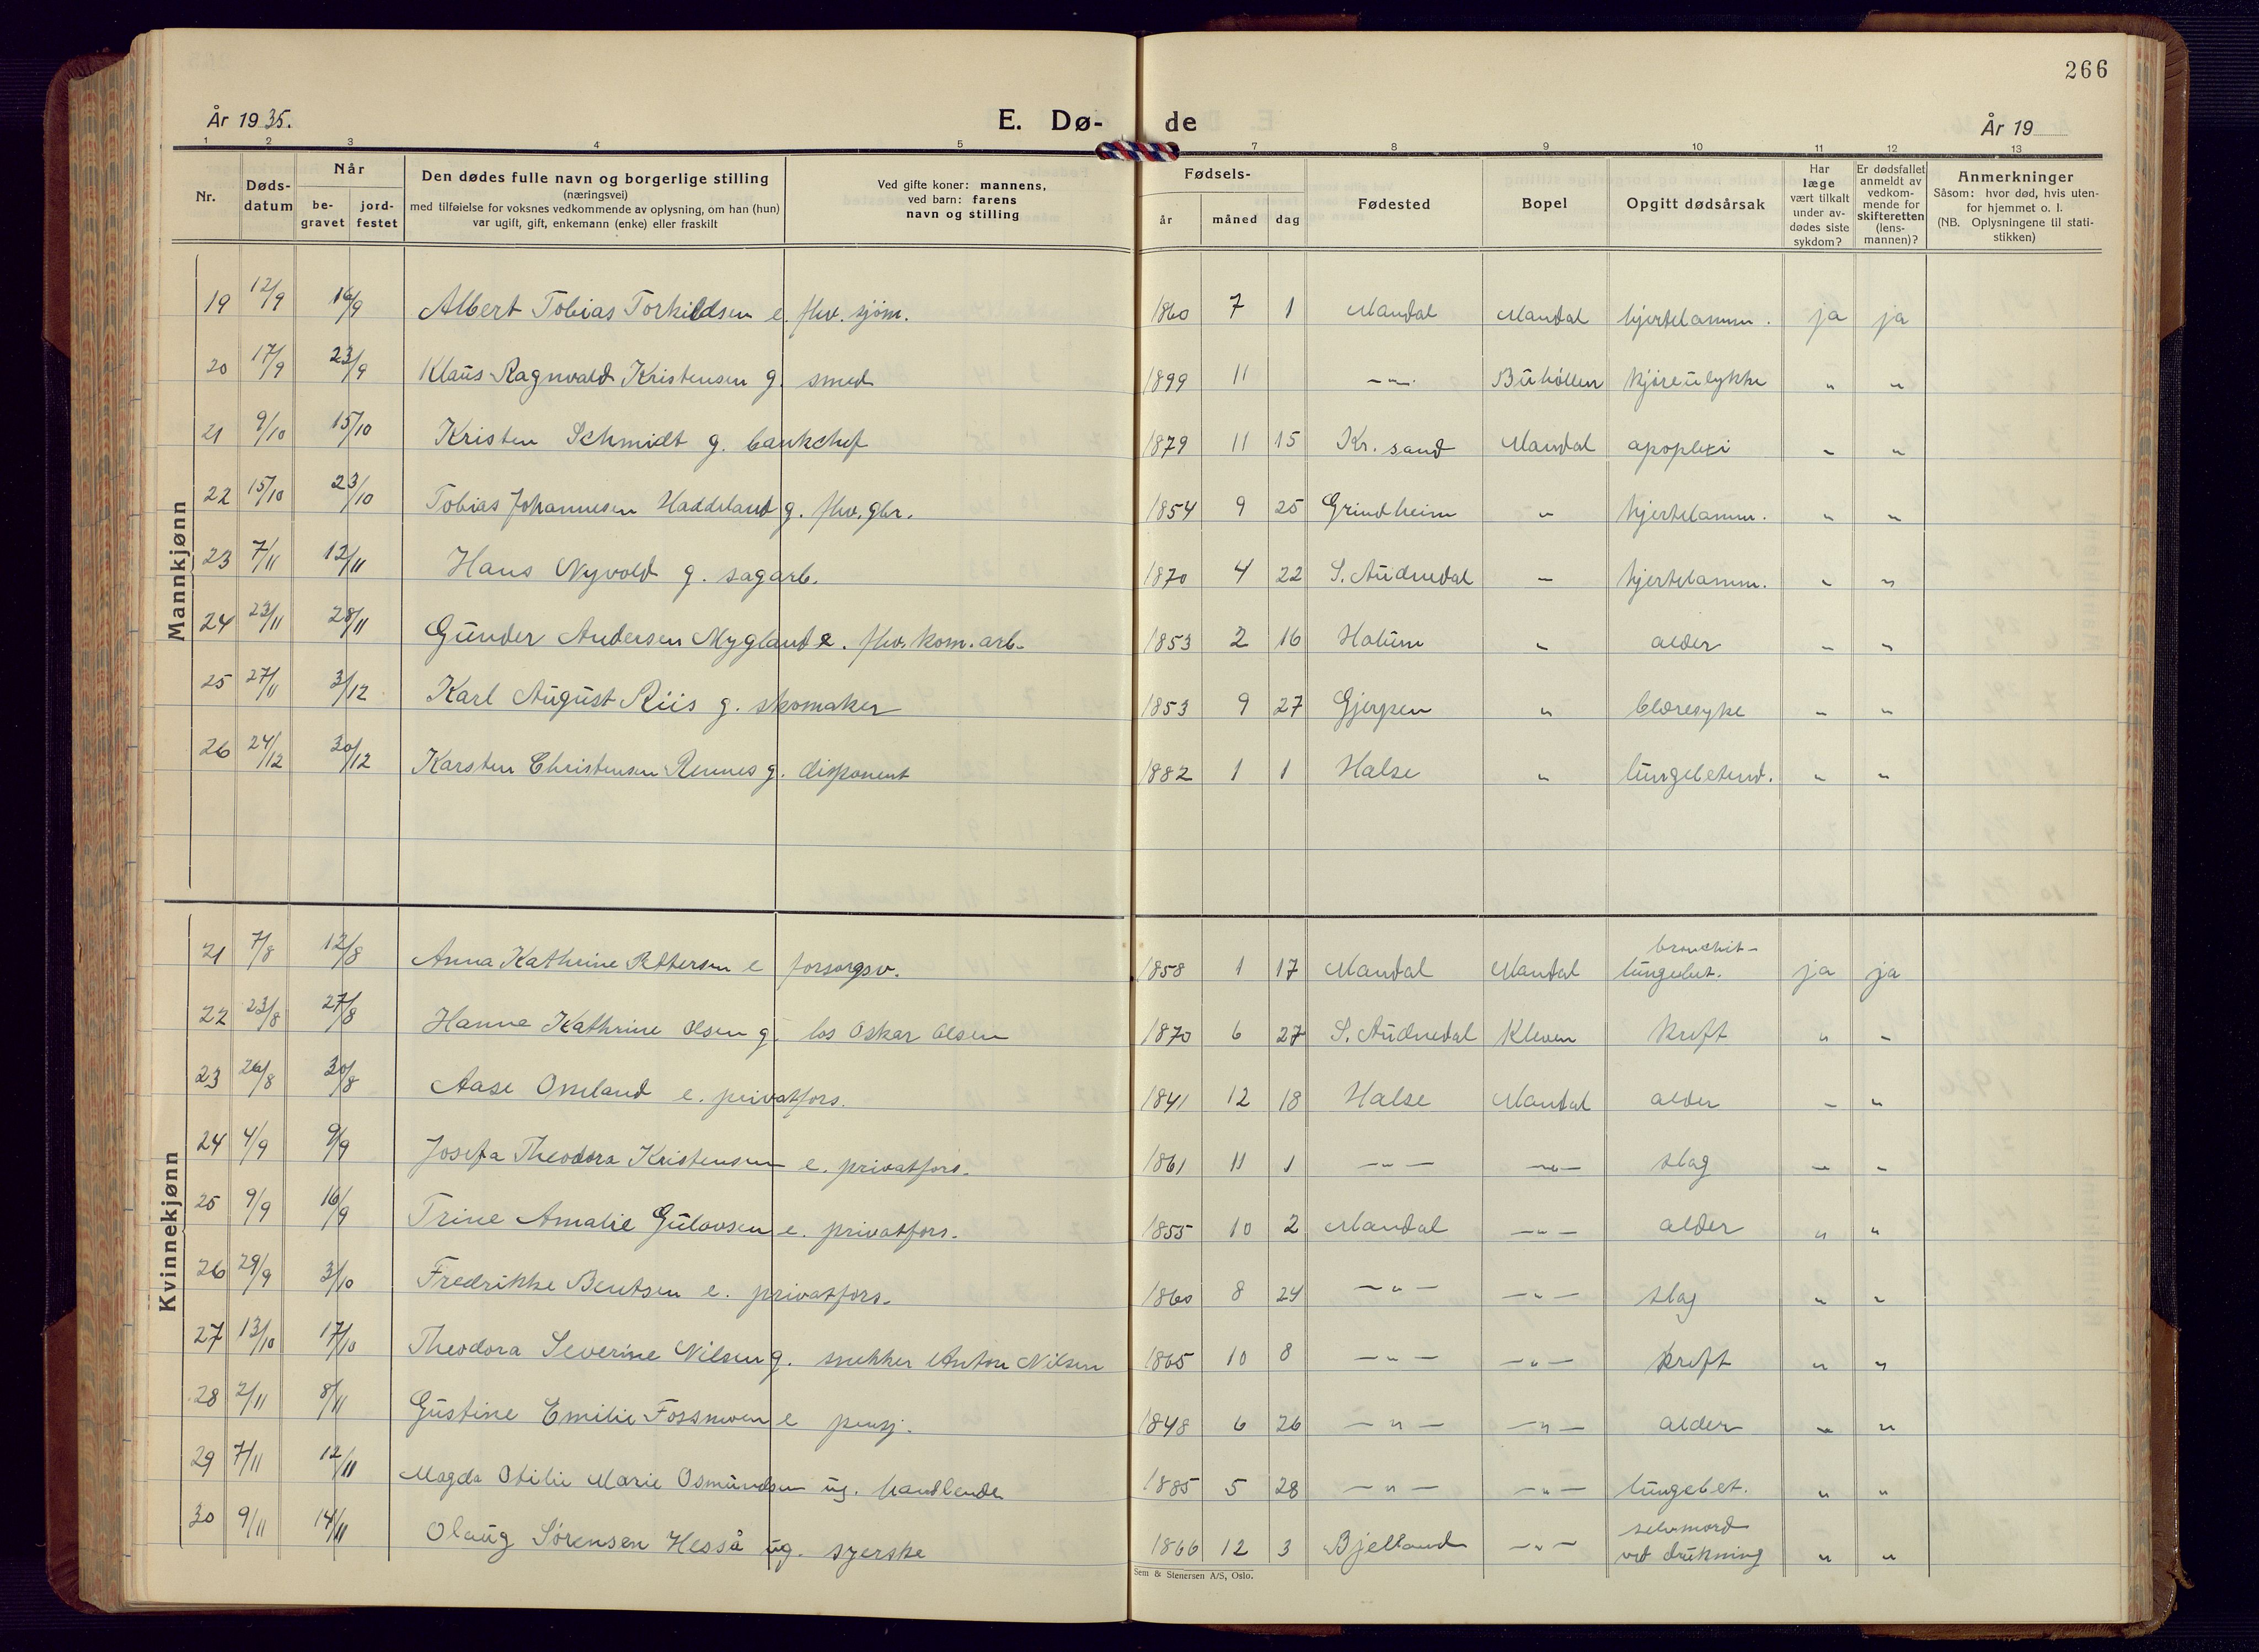 266
År 1935.
E. Dø-
de
År 19
1 2 3 4 5 7 8 9 10 11 12 13
Nr.
Døds-
datum
Når
be-
gravet
jord-
festet
Den dødes fulle navn og borgerlige stilling
(næringsvei)
med tilføielse for voksnes vedkommende av oplysning, om han (hun)
var ugift, gift, enkemann (enke) eller fraskilt
Ved gifte koner: mannens,
ved barn: farens
navn og stilling
Fødsels-
år måned dag
Fødested
Bopel
Opgitt dødsårsak
Har
læge
vært tilkalt
under av-
dødes siste
sykdom?
Er dødsfallet
anmeldt av
vedkom-
mende for
skifteretten
(lens-
mannen)?
Anmerkninger
Såsom: hvor død, hvis uten-
for hjemmet o. l.
(NB. Oplysningene til stati-
stikken)
Mannkjønn
19 12/9 16/9 Albert Tobias Torkildsen e. fhv. sjøm. 1860 7 1 Mandal Mandal hjertelamm. ja ja
20 17/9 23/9 Klaus Ragnvald Kristensen g. smed 1899 11 —"— kjøreulykke " "
21 9/10 15/10 Kristen Schmidt g. bankchef 1879 11 15 Kr. sand Mandal apoplexi " "
22 15/10 23/10 Tobias Johannesen Haddeland g. fhv. gbr. 1854 9 25 Grindheim " hjertelamm. " "
23 7/11 12/11 Hans Nyvold g. sagarb. 1870 4 22 S. Audnedal " hjertelamm. " "
24 23/11 28/11 Gunder Andersen Mygland e. fhv. kom. arb. 1853 2 16 Holum " alder " "
25 27/11 3/12 Karl August Riis g. skomaker 1853 9 27 Gjerpen " blæresyke " "
26 24/12 30/12 Karsten Christensen Rennes g. disponent 1882 1 1 Halse " lungebetend. " "
Kvinnekjønn
bronchit-
21 7/8 12/8 Anna Kathrine Pettersen e forsorgsv. 1858 1 17 Mandal Mandal lungebet. ja ja
22 23/8 27/8 Hanna Kathrine Olsen g. los Oskar Olsen 1870 6 27 S. Audnedal Kleven kreft " "
23 26/8 30/8 Aase Omland e. privatfors. 1841 12 18 Halse Mandal alder " "
24 4/9 9/9 Josefa Theodora Kristensen e. privatfors. 1861 11 1 —"— —"— slag " "
25 9/9 16/9 Trine Amalie Gulovsen e. privatfors. 1855 10 2 Mandal —"— alder " "
26 29/9 3/10 Fredrikke Bentsen e. privatfors. 1860 8 24 —"— —"— slag " "
27 13/10 17/10 Theodora Severine Nilsen g. snekker Anton Nilsen 1865 10 8 —"— —"— kreft " "
28 2/11 8/11 Gustine Emilie Fossmoen e pensj. 1848 6 26 —"— —"— alder " "
29 7/11 12/11 Magda Otilie Marie Osmundsen ug. handlende 1885 5 28 —"— —"— lungebet. " "
selvmord
30 9/11 14/11 Olaug Sørensen Hesså ug. syerske 1866 12 3 Bjelland —"— ved drukning " "
Sem & Stenersen A/S, Oslo.